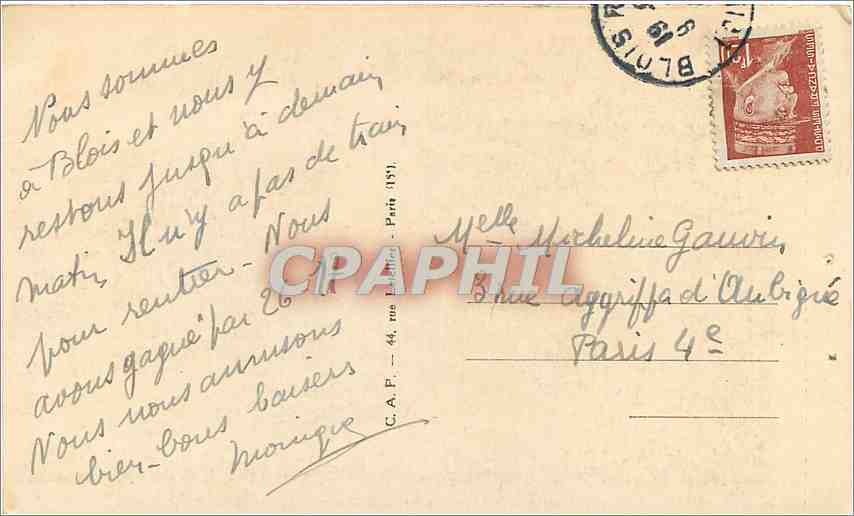 Nous sommes
à Blois et nous y
restons jusqu'à demain
matin, Il n'y a pas de train
pour rentrer - Nous
avons gagné par 26
Nous nous amusons
bien - bons baisers
C. A. P. — 44, rue Letellier - Paris (15e).
BLOIS
Melle Micheline Gauvin
3 rue Aggriffa d'Aubigné
Paris 4e
POSTES FRANÇAISES
CPAPHIL